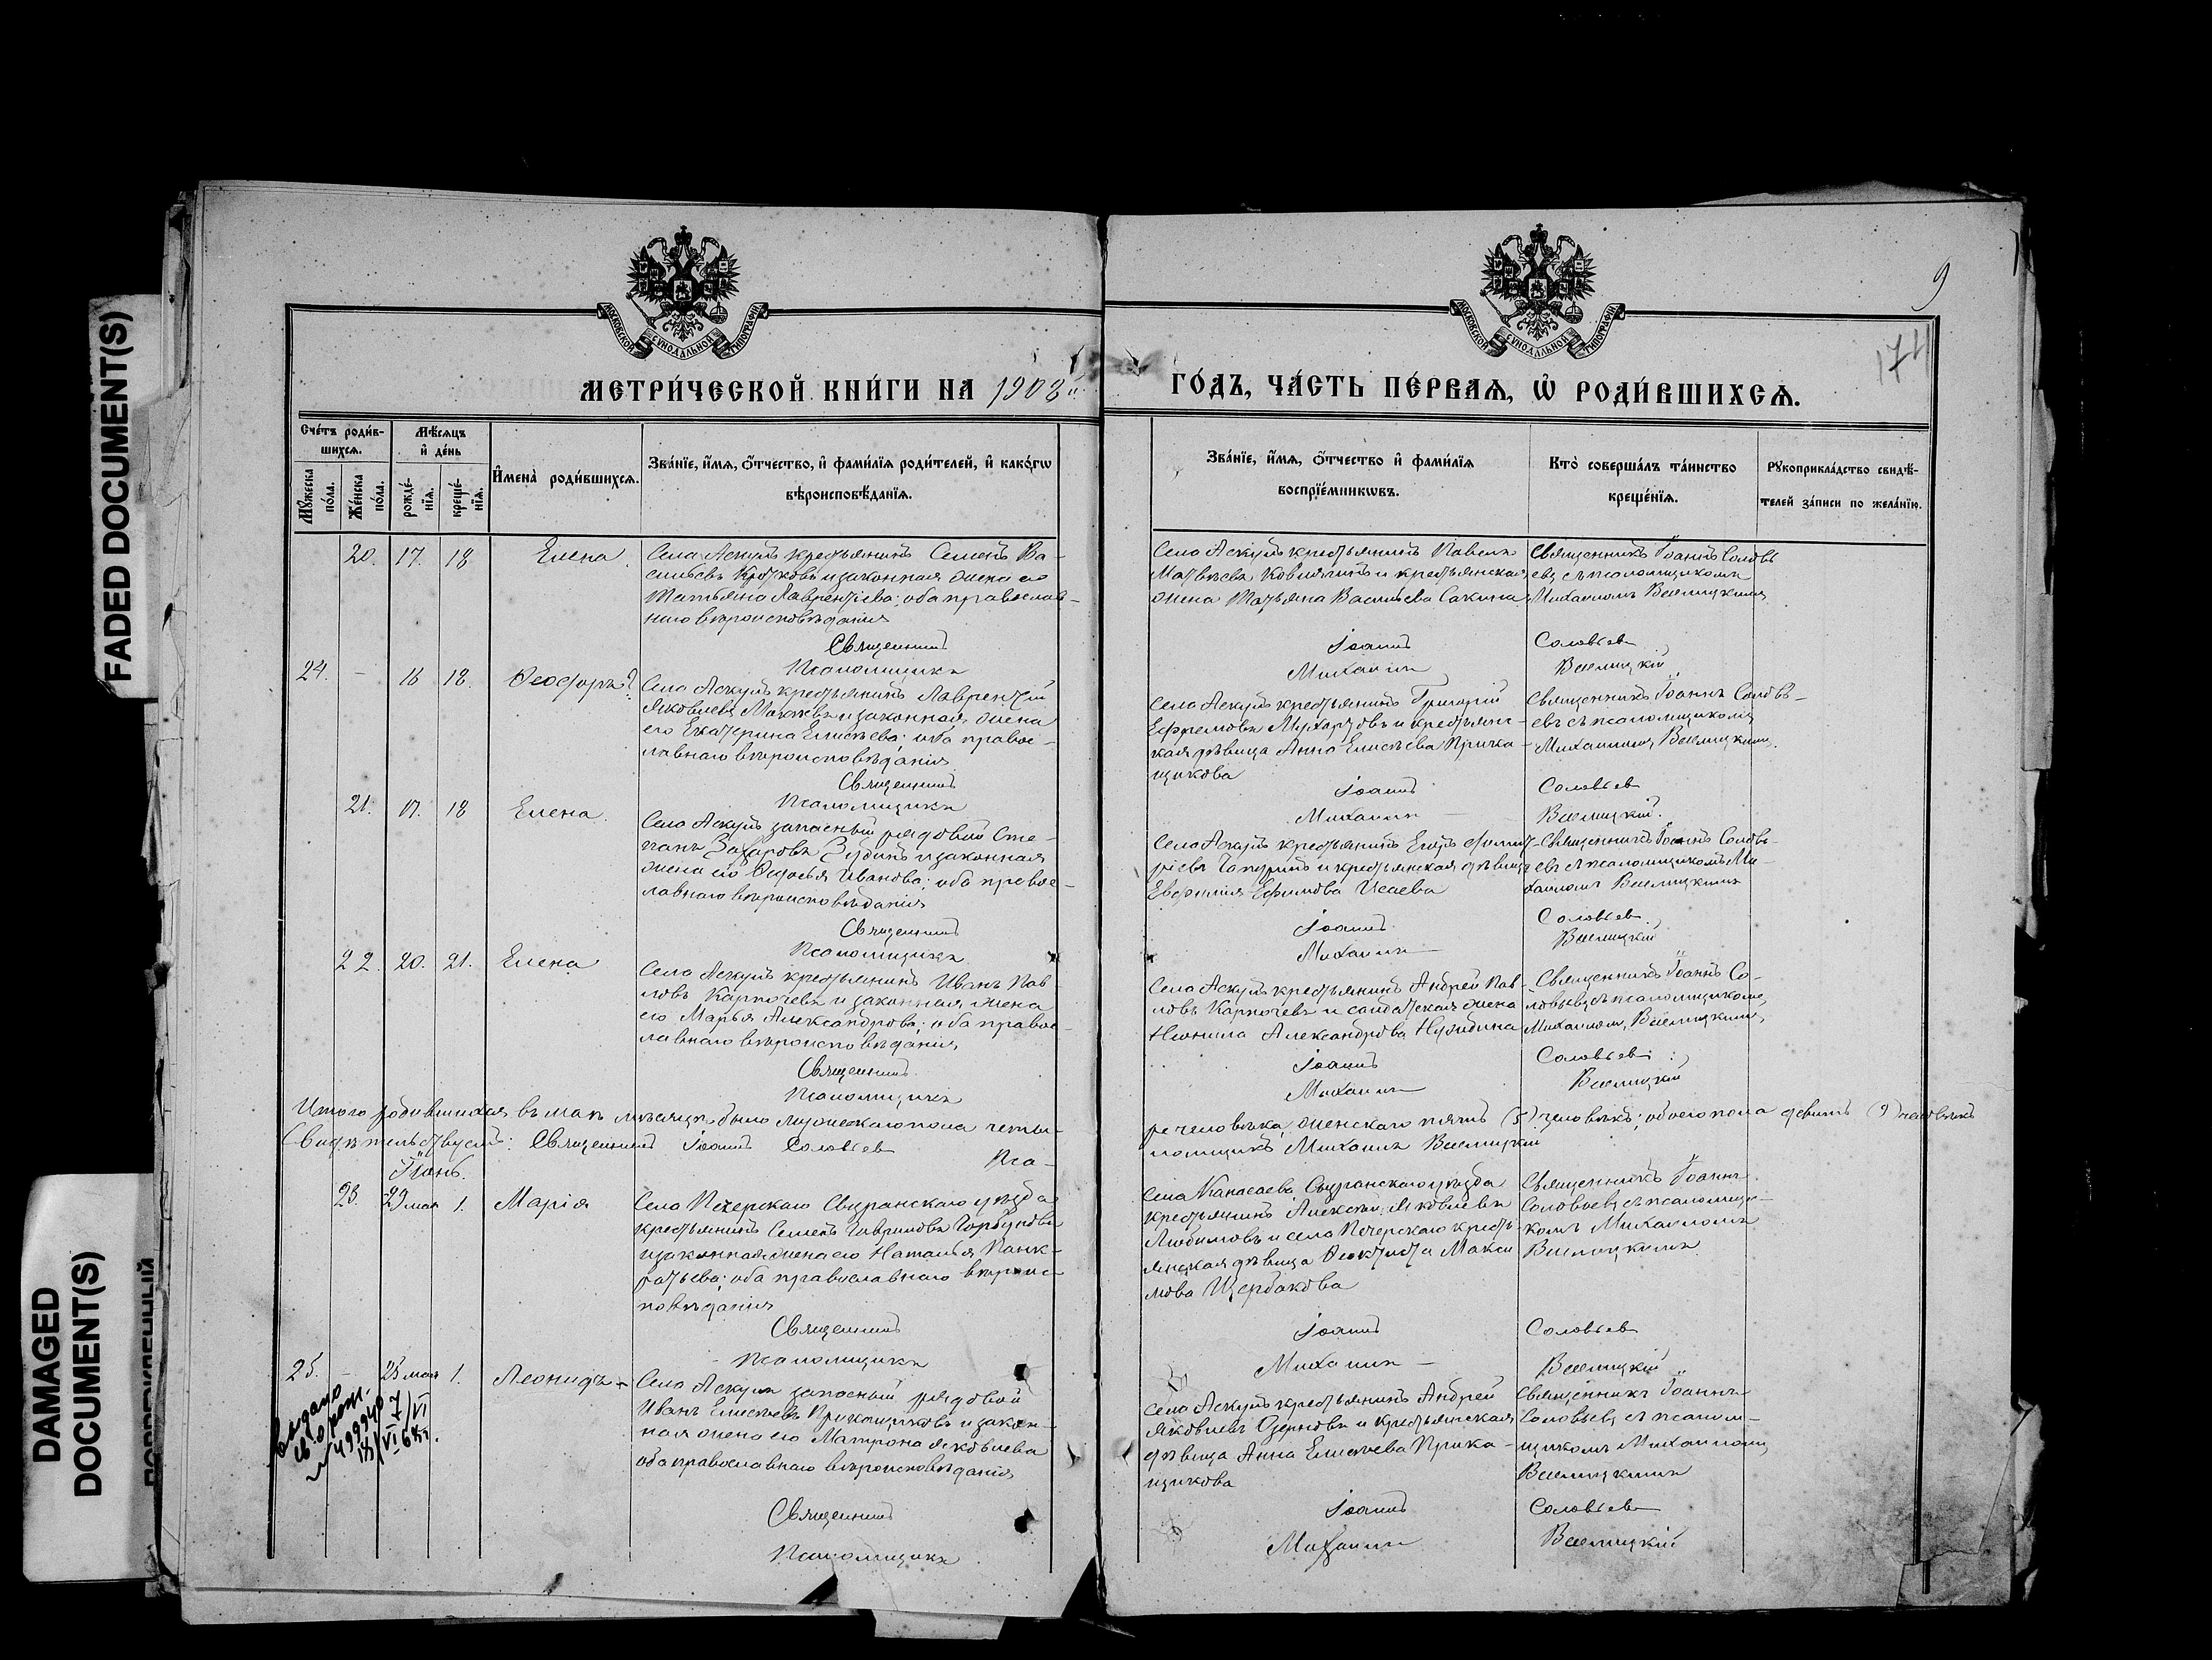 FADED DOCUMENT(S)
DAMAGED
DOCUMENT(S)
МОСКОВСКОЙ СѴНОДАЛЬНОЙ ТИПОГРАФІИ
МОСКОВСКОЙ СѴНОДАЛЬНОЙ ТИПОГРАФІИ
9
174
МЕТРИ́ЧЕСКОЙ КНИ́ГИ НА 1908 й
ГО́ДЪ, ЧА́СТЬ ПЕ́РВАѦ, Ѡ҆ РОДИ́ВШИХСѦ.
Сче́тъ роди́вшихсѧ.
Мꙋ́жеска по́ла.
Же́нска по́ла.
Мѣ́сѧцъ и҆ де́нь
рожде́нїѧ.
креще́нїѧ.
И҆мена̀ роди́вшихсѧ.
Зва́нїе, и҆́мѧ, ѻ҆́тчество, и҆ фами́лїѧ роди́телей, и҆ како́гѡ
вѣроисповѣ́данїѧ.
Зва́нїе, и҆́мѧ, ѻ҆́тчество и҆ фами́лїѧ
воспрїе́мникѡвъ.
Кто̀ соверша́лъ та́инство
креще́нїѧ.
Рꙋкоприкла́дство свидѣ́-
телей за́писи по жела́нїю.
20. 17. 18 Елена.
Села Аскулъ крестьянинъ Семенъ Ва-
сильевъ и законная жена его
Татьяна Лаврентіева; оба православ-
наго вѣроисповѣданія
Священникъ
Псаломщикъ
Села Аскулъ крестьянинъ Павелъ
Матвѣевъ и крестьянская
жена Татьяна Васильева Сакина
Іоаннъ
Михаилъ
Священникъ Іоаннъ Соловь
евъ съ псаломщикомъ
Михаиломъ
Соловьев
24. – 16 18. Ѳеодоръ
Села Аскулъ крестьянинъ Лаврентій
Яковлевъ и законная жена
его Екатерина Елисѣева; оба правос-
лавнаго вѣроисповѣданія
Священникъ
Псаломщикъ
Села Аскулъ крестьянинъ Григорій
Ефремовъ и крестьянс-
кая дѣвица Анна Елисѣева Прика-
щикова
Іоаннъ
Михаилъ
Священникъ Іоаннъ Соловь-
евъ съ псаломщикомъ
Михаиломъ
Соловьев
21. 17. 18 Елена.
Села Аскулъ запасный рядовой Сте-
панъ Захаровъ Зубинъ и законная
жена его Ѳедосья Иванова; оба правос-
лавнаго вѣроисповѣданія
Священникъ
Псаломщикъ
Села Аскулъ крестьянинъ
и крестьянская дѣвица
Евфимія Ефимова Исаева
Іоаннъ
Михаилъ
Священникъ Іоаннъ Соловь-
евъ съ псаломщикомъ Ми-
хаиломъ
Соловьев
22. 20. 21. Елена
Села Аскулъ крестьянинъ Иванъ Пав-
ловъ Карпачевъ и законная жена
его Марья Александрова; оба правос-
лавнаго вѣроисповѣданія
Священникъ
Псаломщикъ
Села Аскулъ крестьянинъ Андрей Пав-
ловъ Карпачевъ и солдатская жена
Неонила Александрова
Іоаннъ
Михаилъ
Священникъ Іоаннъ Со-
ловьевъ съ псаломщикомъ
Михаиломъ
Соловьев
Итого родившихся въ маѣ мѣсяцѣ было мужескаго пола четы-
ре человѣка, женскаго пять (5) человѣкъ; обоего пола девять (9) человѣкъ
Свидѣтельствуемъ: Священникъ Іоаннъ Соловьев
Пса-
ломщикъ Михаилъ
Іюнь.
23. 29 мая 1. Марія
Села Печерскаго Сызранскаго уѣзда
крестьянинъ Семенъ Гавриловъ Горбуновъ
и законная жена его Наталья Панк-
ратьева; оба православнаго вѣроис-
повѣданія
Священникъ
Псаломщикъ
Села Сызранскаго уѣзда
крестьянинъ Алексѣй Яковлевъ
Любимовъ и села Печерскаго кресть-
янская дѣвица Ѳеоктиста Макси
мова Щербакова
Іоаннъ
Михаилъ
Священникъ Іоаннъ
Соловьевъ съ псаломщи-
комъ Михаиломъ
Соловьев
25. – 23 мая 1. Леонидъ
Села Аскулъ запасный рядовой
Иванъ Елисѣевъ Прикащиковъ и закон-
ная жена его Матрона Яковлева
оба православнаго вѣроисповѣданія
Священникъ
Псаломщикъ
Села Аскулъ крестьянинъ Андрей
Яковлевъ Озерновъ и крестьянская
дѣвица Анна Елисѣева Прика-
щикова
Іоаннъ
Михаилъ
Священникъ Іоаннъ
Соловьевъ съ псалом-
щикомъ Михаиломъ
Соловьев
выдано
св. о рожд.